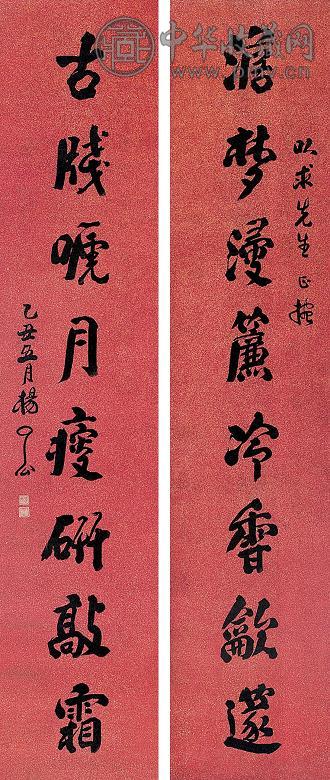 中华收藏网
澹梦漫簾冷香歛邃
求先生正
古牋嗁月瘦研敲霜
乙丑五月楊了公